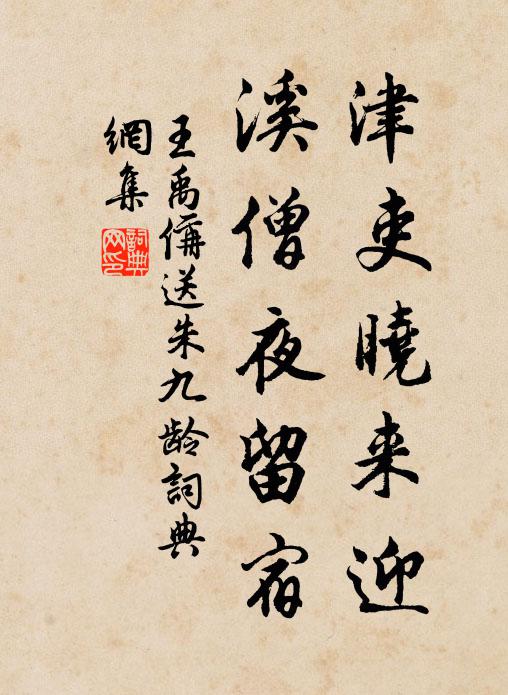 津吏曉来迎
溪僧夜留宿
王禹偁送朱九龄詞典
網集
詞典
网印